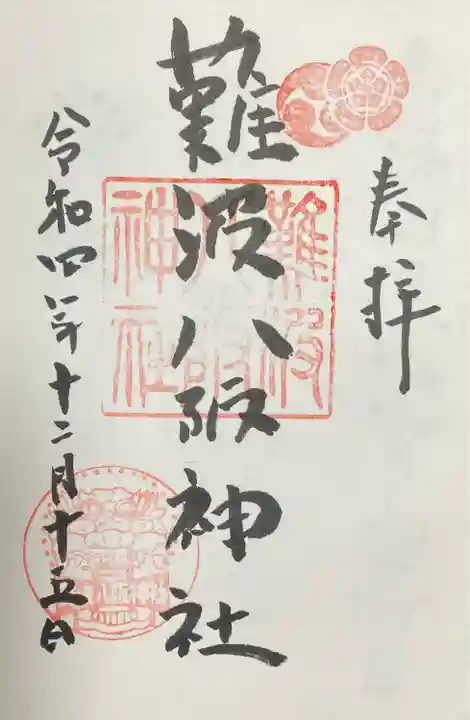 奉拝
難波八阪神社
難波八阪神社
令和四年十二月十五日